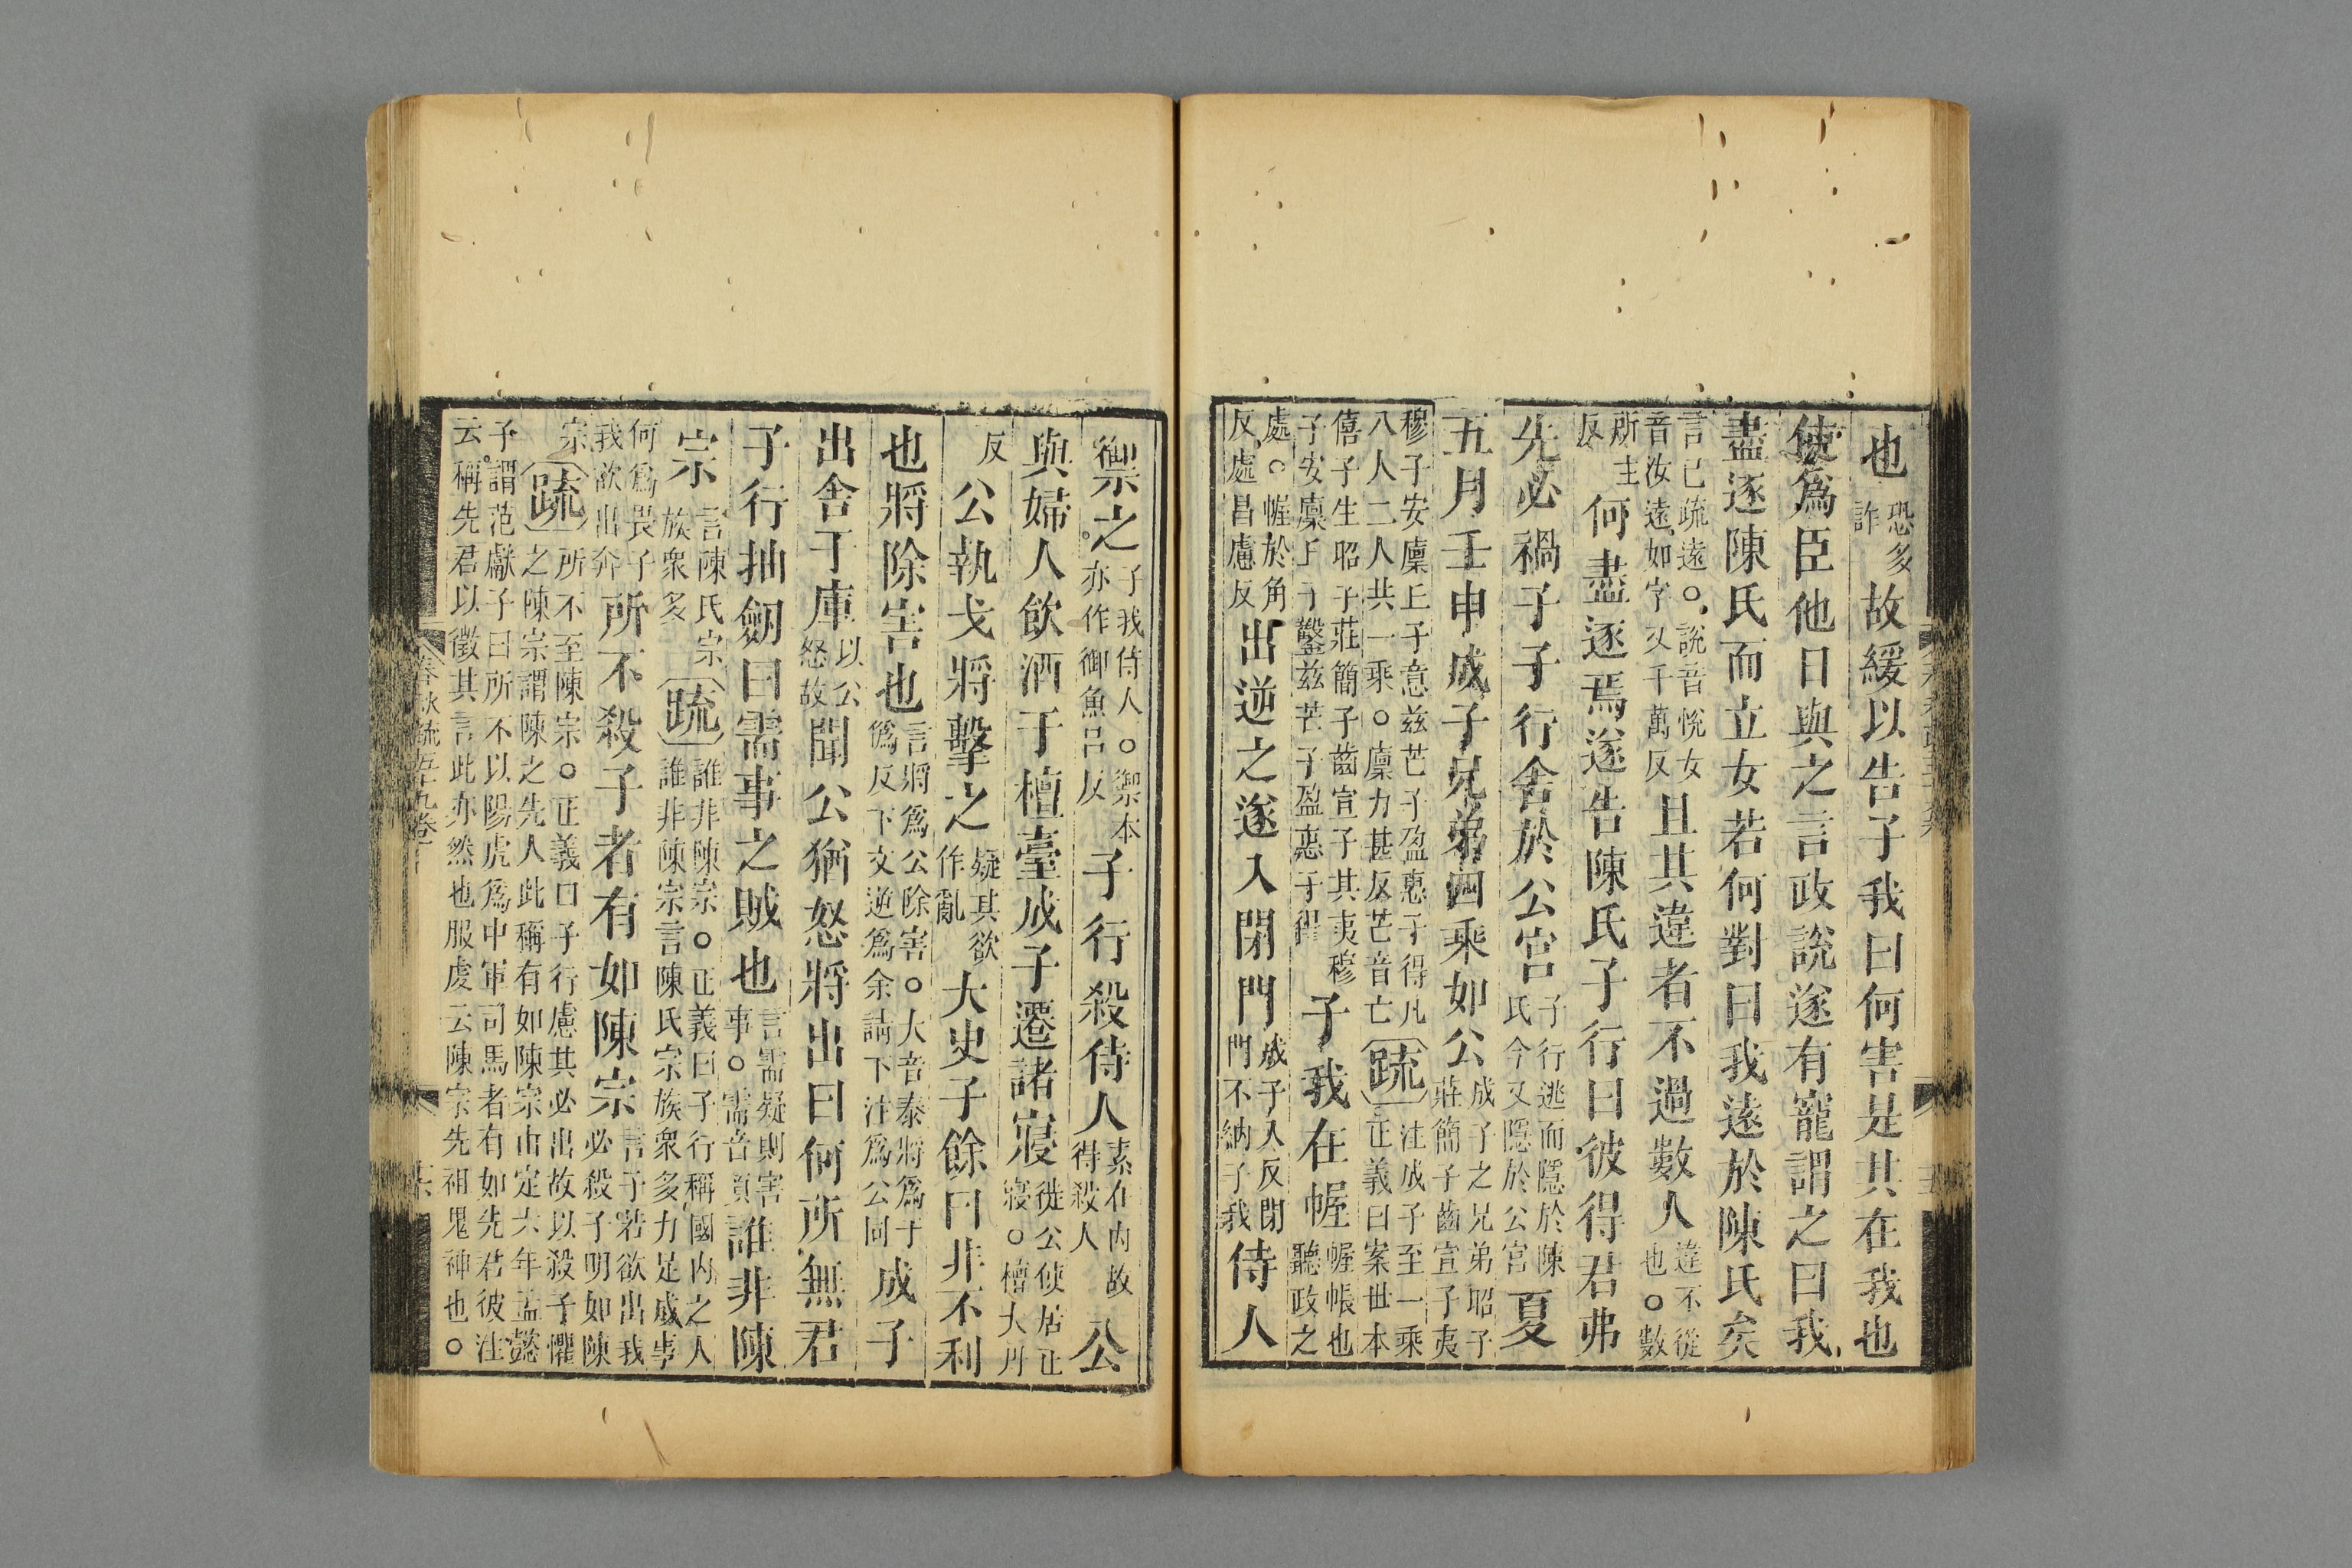 也恐多詐故緩以告子我曰何害是其在我也
使爲臣他日與之言政說遂有寵謂之曰我
盡逐陳氏而立女若何對曰我遠於陳氏矣
言已疏遠○說音悅女音汝遠如字又于萬反且其違者不過數人違不從也○數
所主反何盡逐焉遂告陳氏子行曰彼得君弗
先必禍子子行舍於公宮子行逃而隱於陳氏今又隱於公宮夏
五月壬申成子兄弟四乘如公成子之兄弟昭子莊簡子齒宣子夷
穆子安廩丘子意兹芒子盈惠子得凡八人二人共一乘○廩力甚反芒音亡疏注成子至一乘正義曰案世本
僖子生昭子莊簡子齒宣子其夷穆子安廩丘子鑿兹芒子盈惠子得子我在幄幄帳也聽政之
處○幄於角反處昌慮反出逆之遂入閉門成子入反閉門不納子我侍人
禦之子我侍人○禦本亦作御魚呂反子行殺侍人素在內故得殺人公
與婦人飲酒于檀臺成子遷諸寢徙公使居正寢○檀大丹
反公執戈將擊之疑其欲作亂大史子餘曰非不利
也將除害也言將爲公除害○大音泰將爲于僞反下文逆爲余請下注爲公同成子
出舍于庫以公怒故聞公猶怒將出曰何所無君
子行抽劒曰需事之賊也言需疑則害事○需音須誰非陳
宗言陳氏宗族衆多疏誰非陳宗○正義曰子行稱國內之人誰非陳宗言陳氏宗族衆多力足成事
何爲畏子我欲出奔所不殺子者有如陳宗言子若欲出我必殺子明如陳
宗疏所不至陳宗○正義曰子行慮其必出故以殺子懼之陳宗謂陳之先人此稱有如陳宗由定六年孟懿
子謂范獻子曰所不以陽虎爲中軍司馬者有如先君彼注云稱先君以徵其言此亦然也服虔云陳宗先祖鬼神也○
春秋疏五十九卷